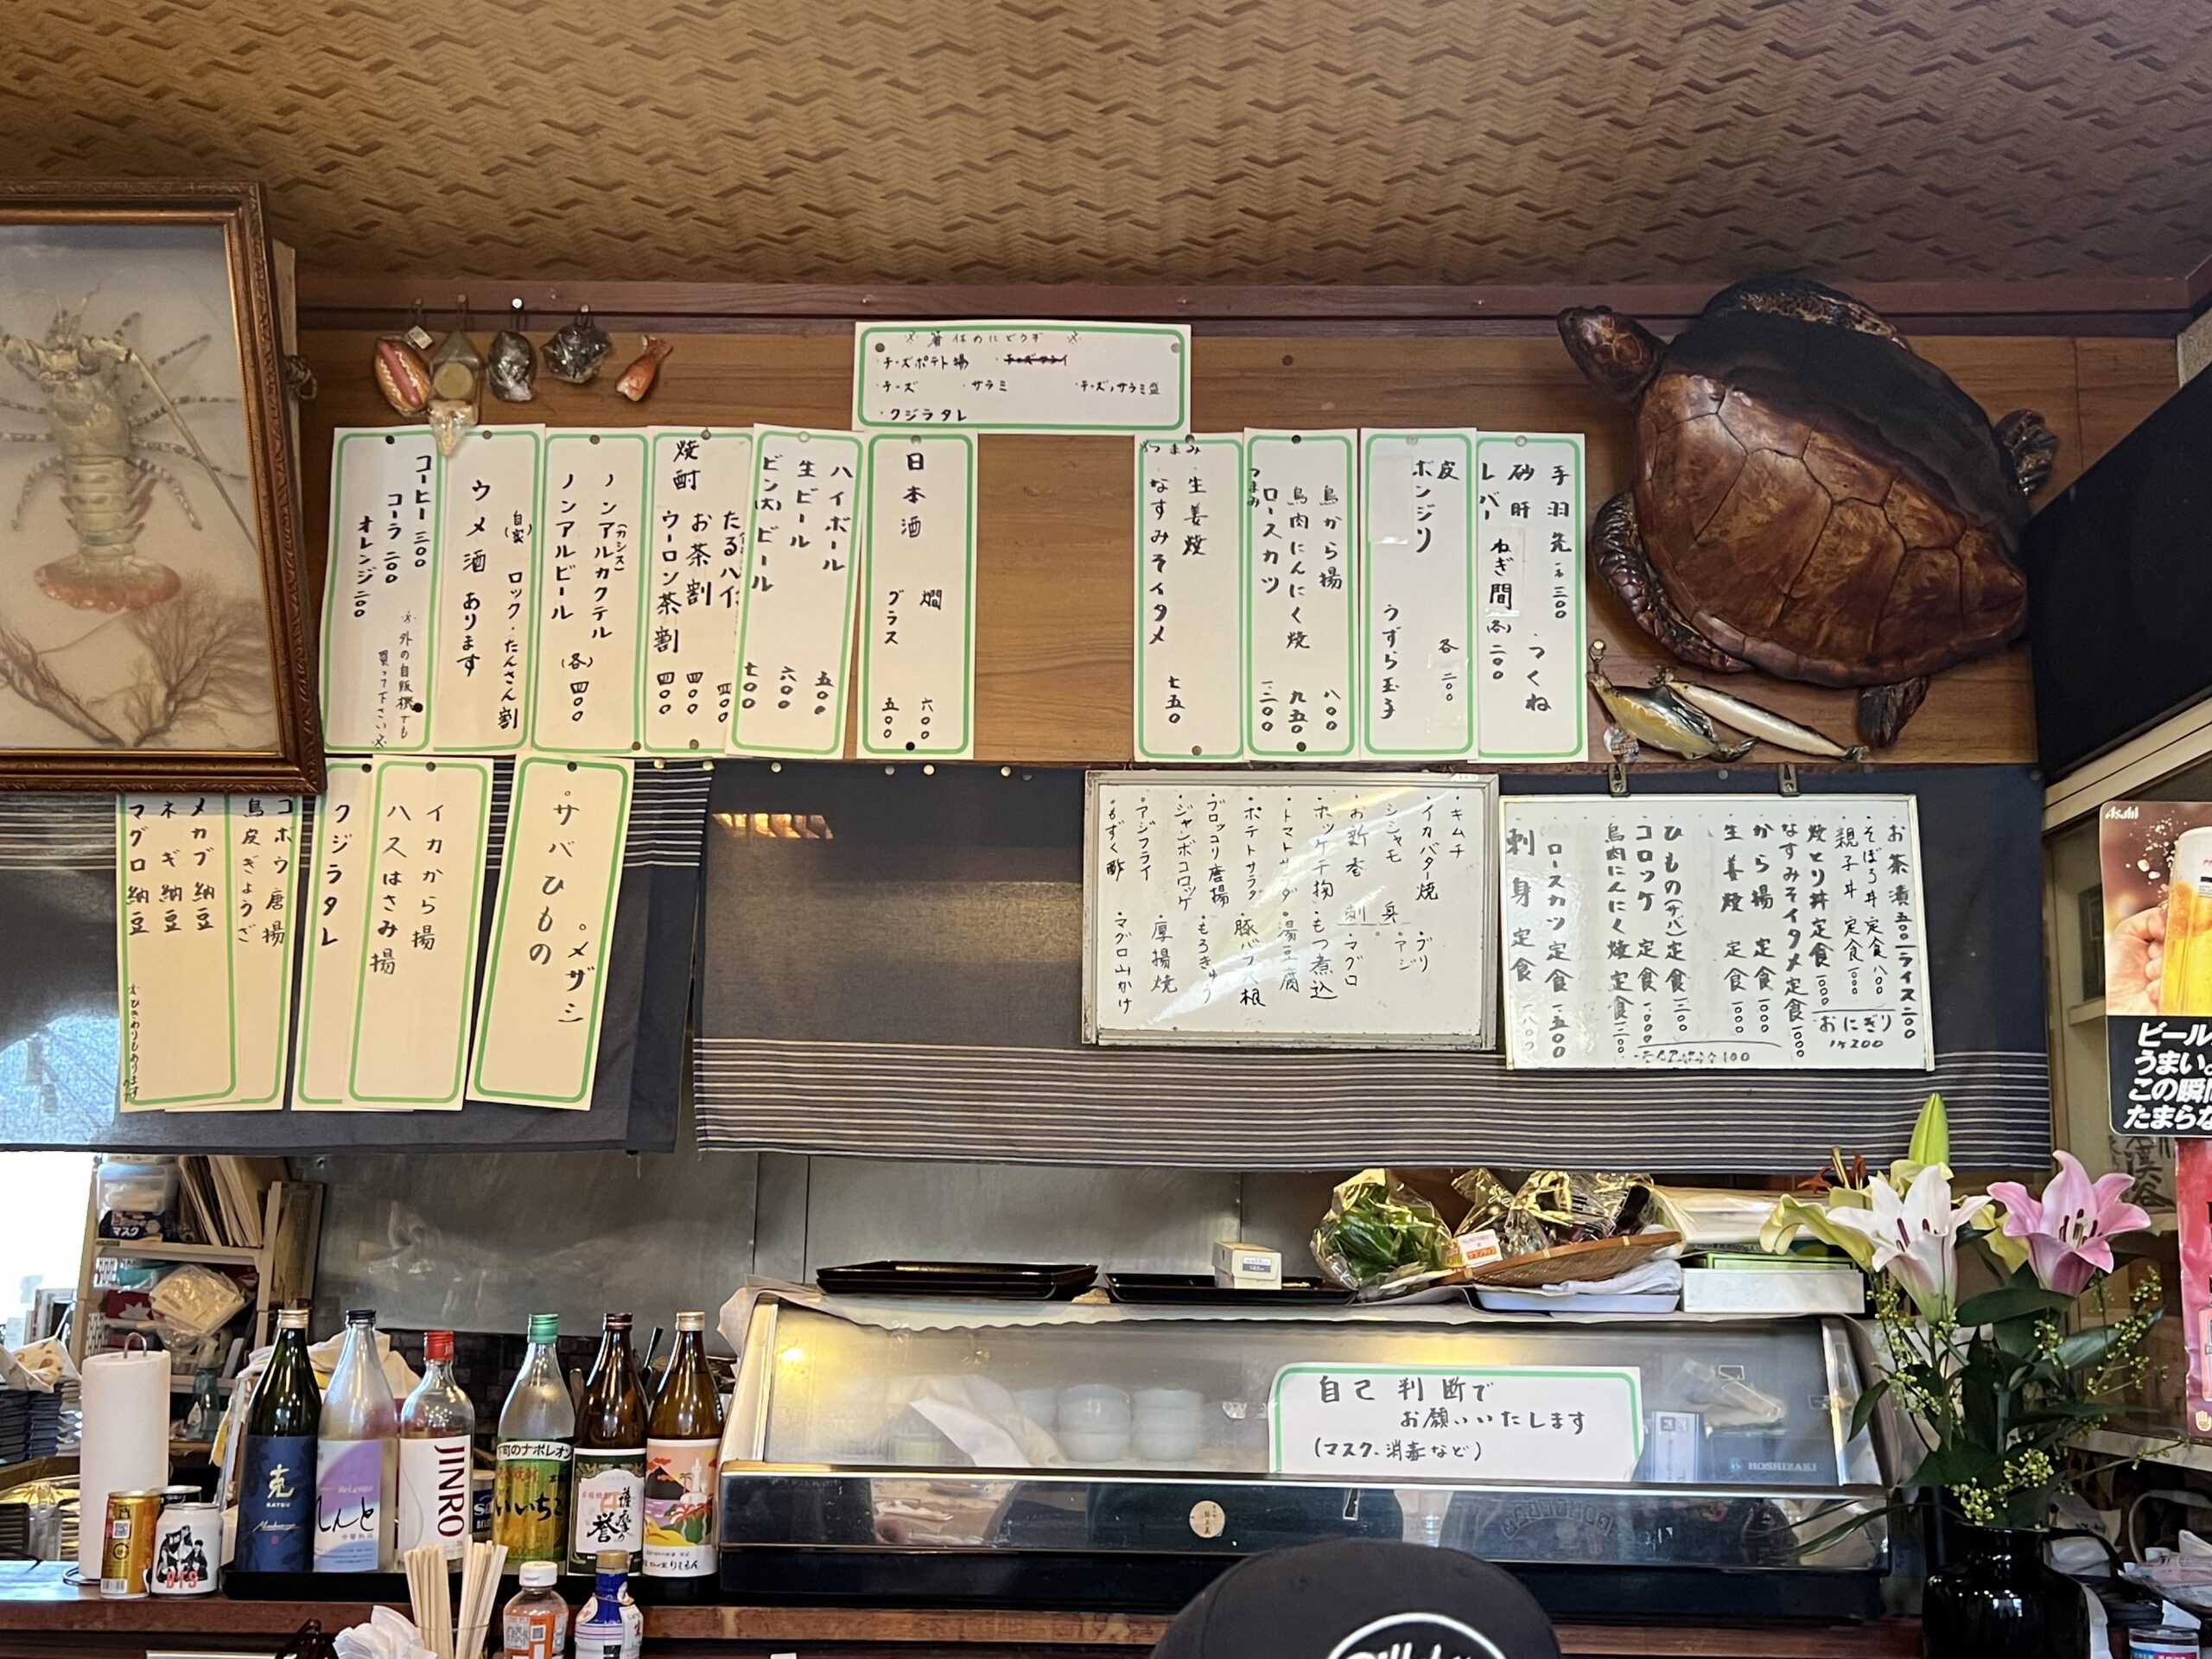 ※ 箸休めにどうぞ ※
・チーズポテト揚
・チーズ ・サラミ ・チーズ、サラミ盛
・クジラタレ
手羽先 一本 三〇〇
・つくね
砂肝 ねぎ間 (各) 二〇〇
レバー
皮 各 二〇〇
ボンジリ うずら玉子
鳥から揚 八〇〇
鳥肉にんにく焼 九五〇
ロースカツ 一二〇〇
つまみ
つまみ
・生姜焼
・なすみそイタメ 七五〇
日本酒 燗 六〇〇
グラス 五〇〇
ハイボール 五〇〇
生ビール 六〇〇
ビン(大)ビール 七〇〇
焼酎
たるハイ 四〇〇
お茶割 四〇〇
ウーロン茶割 四〇〇
(カシス)
ノンアルカクテル
ノンアルビール (各) 四〇〇
(自家) ロック・たんさん割
ウメ酒 あります
コーヒー 三〇〇
コーラ 二〇〇
オレンジ 二〇〇
※外の自販機でも
買って下さい※
・メザシ
・サバひもの
イカから揚
ハスはさみ揚
クジラタレ
ゴボウ唐揚
鳥皮ぎょうざ
メカブ納豆
ネギ納豆
マグロ納豆
※ひきわりもあります
・キムチ
・イカバター焼
・シシャモ
・お新香
・ホッケ干物
・トマトサラダ
・ポテトサラダ
・ブロッコリ唐揚
・ジャンボコロッケ
・アジフライ
・もずく酢
刺身
・ブリ
・アジ
・マグロ
・もつ煮込
・湯豆腐
・豚バラ大根
・もろきゅう
・厚揚焼
・マグロ山かけ
お茶漬 五〇〇 ライス 二〇〇
・そぼろ丼定食 八〇〇
・親子丼 定食 1000
焼とり丼定食 1000
おにぎり
1ヶ200
なすみそイタメ定食 1000
から揚 定食 1000
生姜焼 定食 1000
ひもの(サバ)定食
コロッケ 定食 1000
鳥肉にんにく焼定食
ロースカツ定食 一五〇〇
刺身定食
自己判断で
お願いいたします
(マスク、消毒など)
HOSHIZAKI
Asahi
ビール
うまい。
この瞬間
たまらな
マスク
克
KATSU
れんと
JINRO
下町のナポレオン
いいちこ
薩摩の誉
BTS